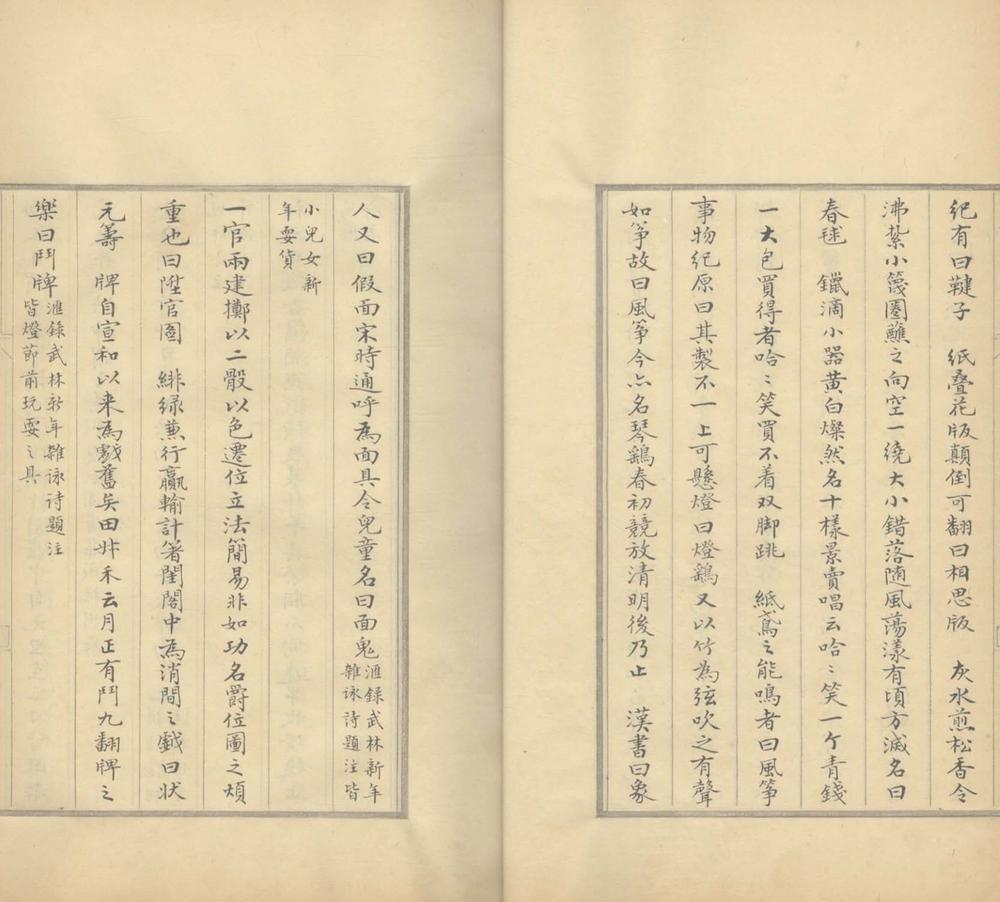 紀有曰鞬子　紙叠花版顛倒可翻曰相思版　灰水煎松香令
沸紮小篾圏蘸之向空一繞大小錯落随風蕩漾有頃方滅名曰
春毬　鑞滴小器黄白燦然名十樣景賣唱云哈〻笑一个青錢
一大包買得者哈〻笑買不着双脚跳　紙鳶之能鳴者曰風箏
事物紀原曰其製不一上可懸燈曰燈鷂又以竹為弦吹之有聲
如箏故曰風箏今亦名琴鷂春初競放清明後乃止　漢書曰象
人又曰假面宋時通呼為面具今兒童名曰面鬼滙錄武林新年
雜咏詩題注皆
小兒女新
年耍貨
一官兩建擲以二骰以色遷位立法簡易非如功名爵位圖之煩
重也曰陞官圖　緋緑兼行贏輸計箸閨閣中為消閒之戲曰状
元籌　牌自宣和以来為戲舊矣田叔禾云月正有鬥九翻牌之
樂曰鬥牌滙錄武林新年雜咏詩題注
皆燈節前玩耍之具